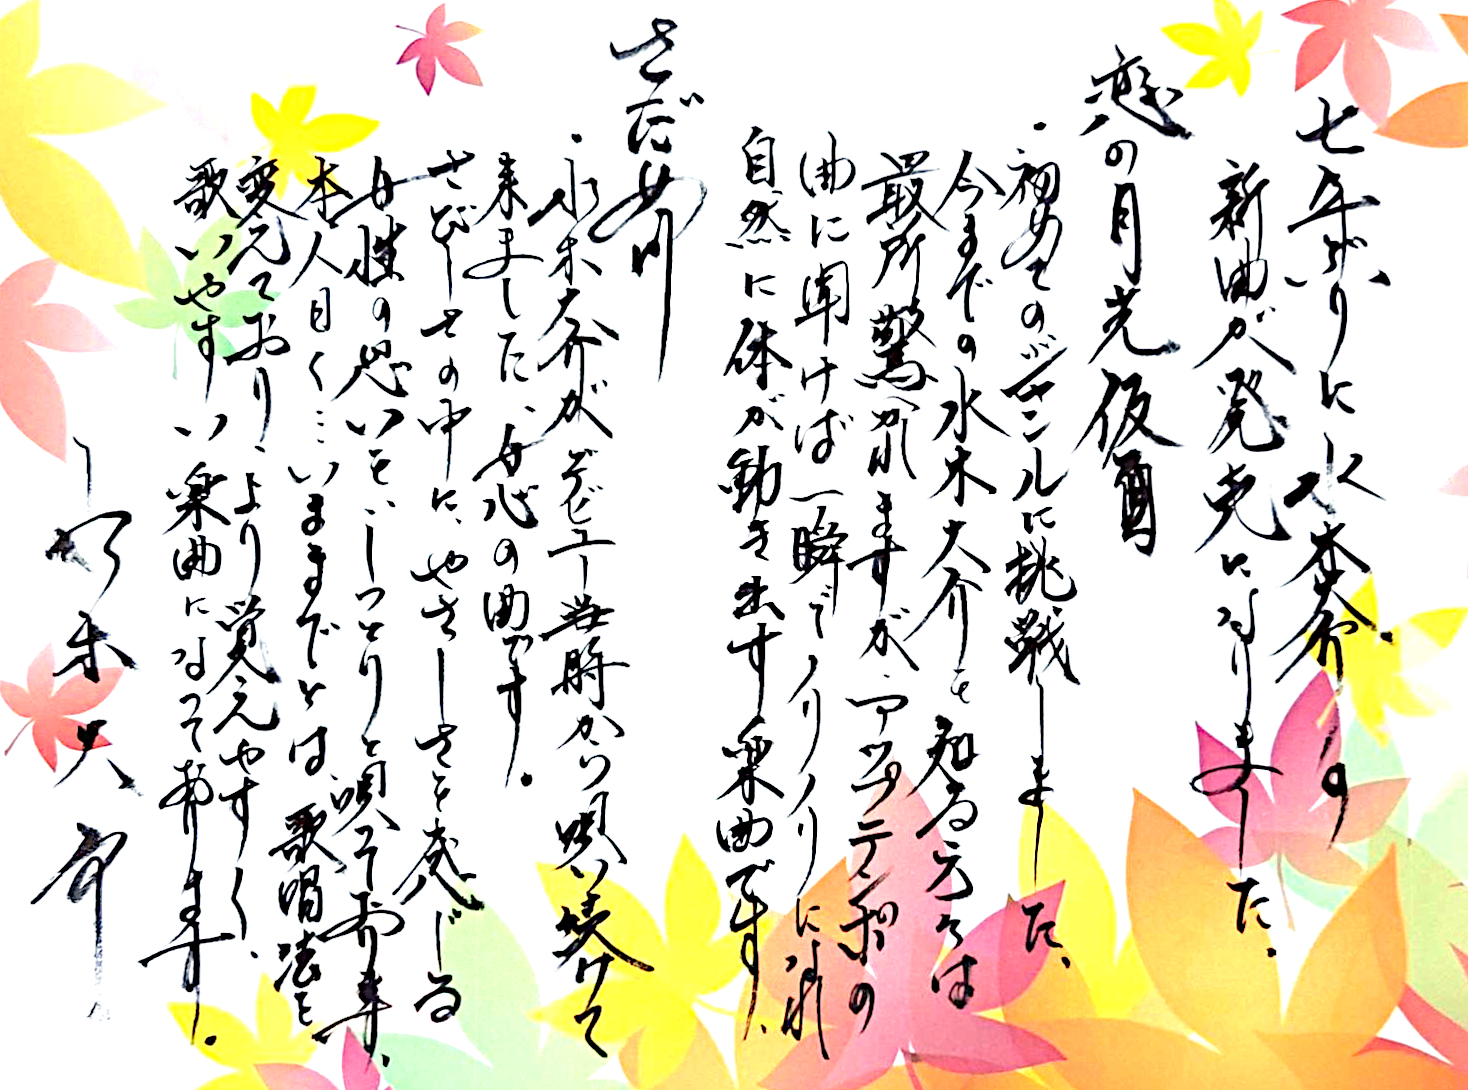 七年ぶりに水木大介の
新曲が発売になりました。
恋の月光仮面
・初めてのジャンルに挑戦しました、
今までの水木大介を知る方々は
最所驚かれますが、アップテンポの
曲に聞けば一瞬でノリノリになれ
自然に体が動き出す楽曲です、
さだめ川
・水木大介がデビュー当時から唄い続けて
来ました、女心の曲です。
さびしさの中に、やさしさを感じる
女性の思いを、しっとりと唄っております、
本人曰く…いままでとは歌唱法を
変えており、より覚えやすく、
歌いやすい楽曲になっております。
水木大介